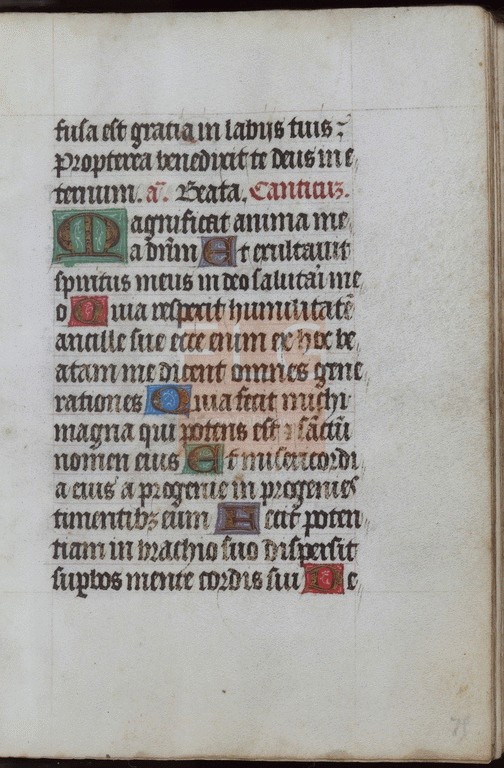 fusa est gratia in labijs tuis :
Propterea benedixit te deus in e
ternum. añ. Beata. Canticuz.
Magnificat anima me
a dñm Et exultauit
spiritus meus in deo salutãi me
o Quia respexit humilitatẽ
ancille sue ecce enim ex hoc be
atam me dicent omnes gene
rationes Quia fecit michi
magna qui potens est ⁊ sãctũ
nomen eius Et misericordi
a eius a progenie in progenies
timentibꝫ eum Fecit poten
tiam in brachio suo dispersit
suꝑbos mente cordis sui De
75